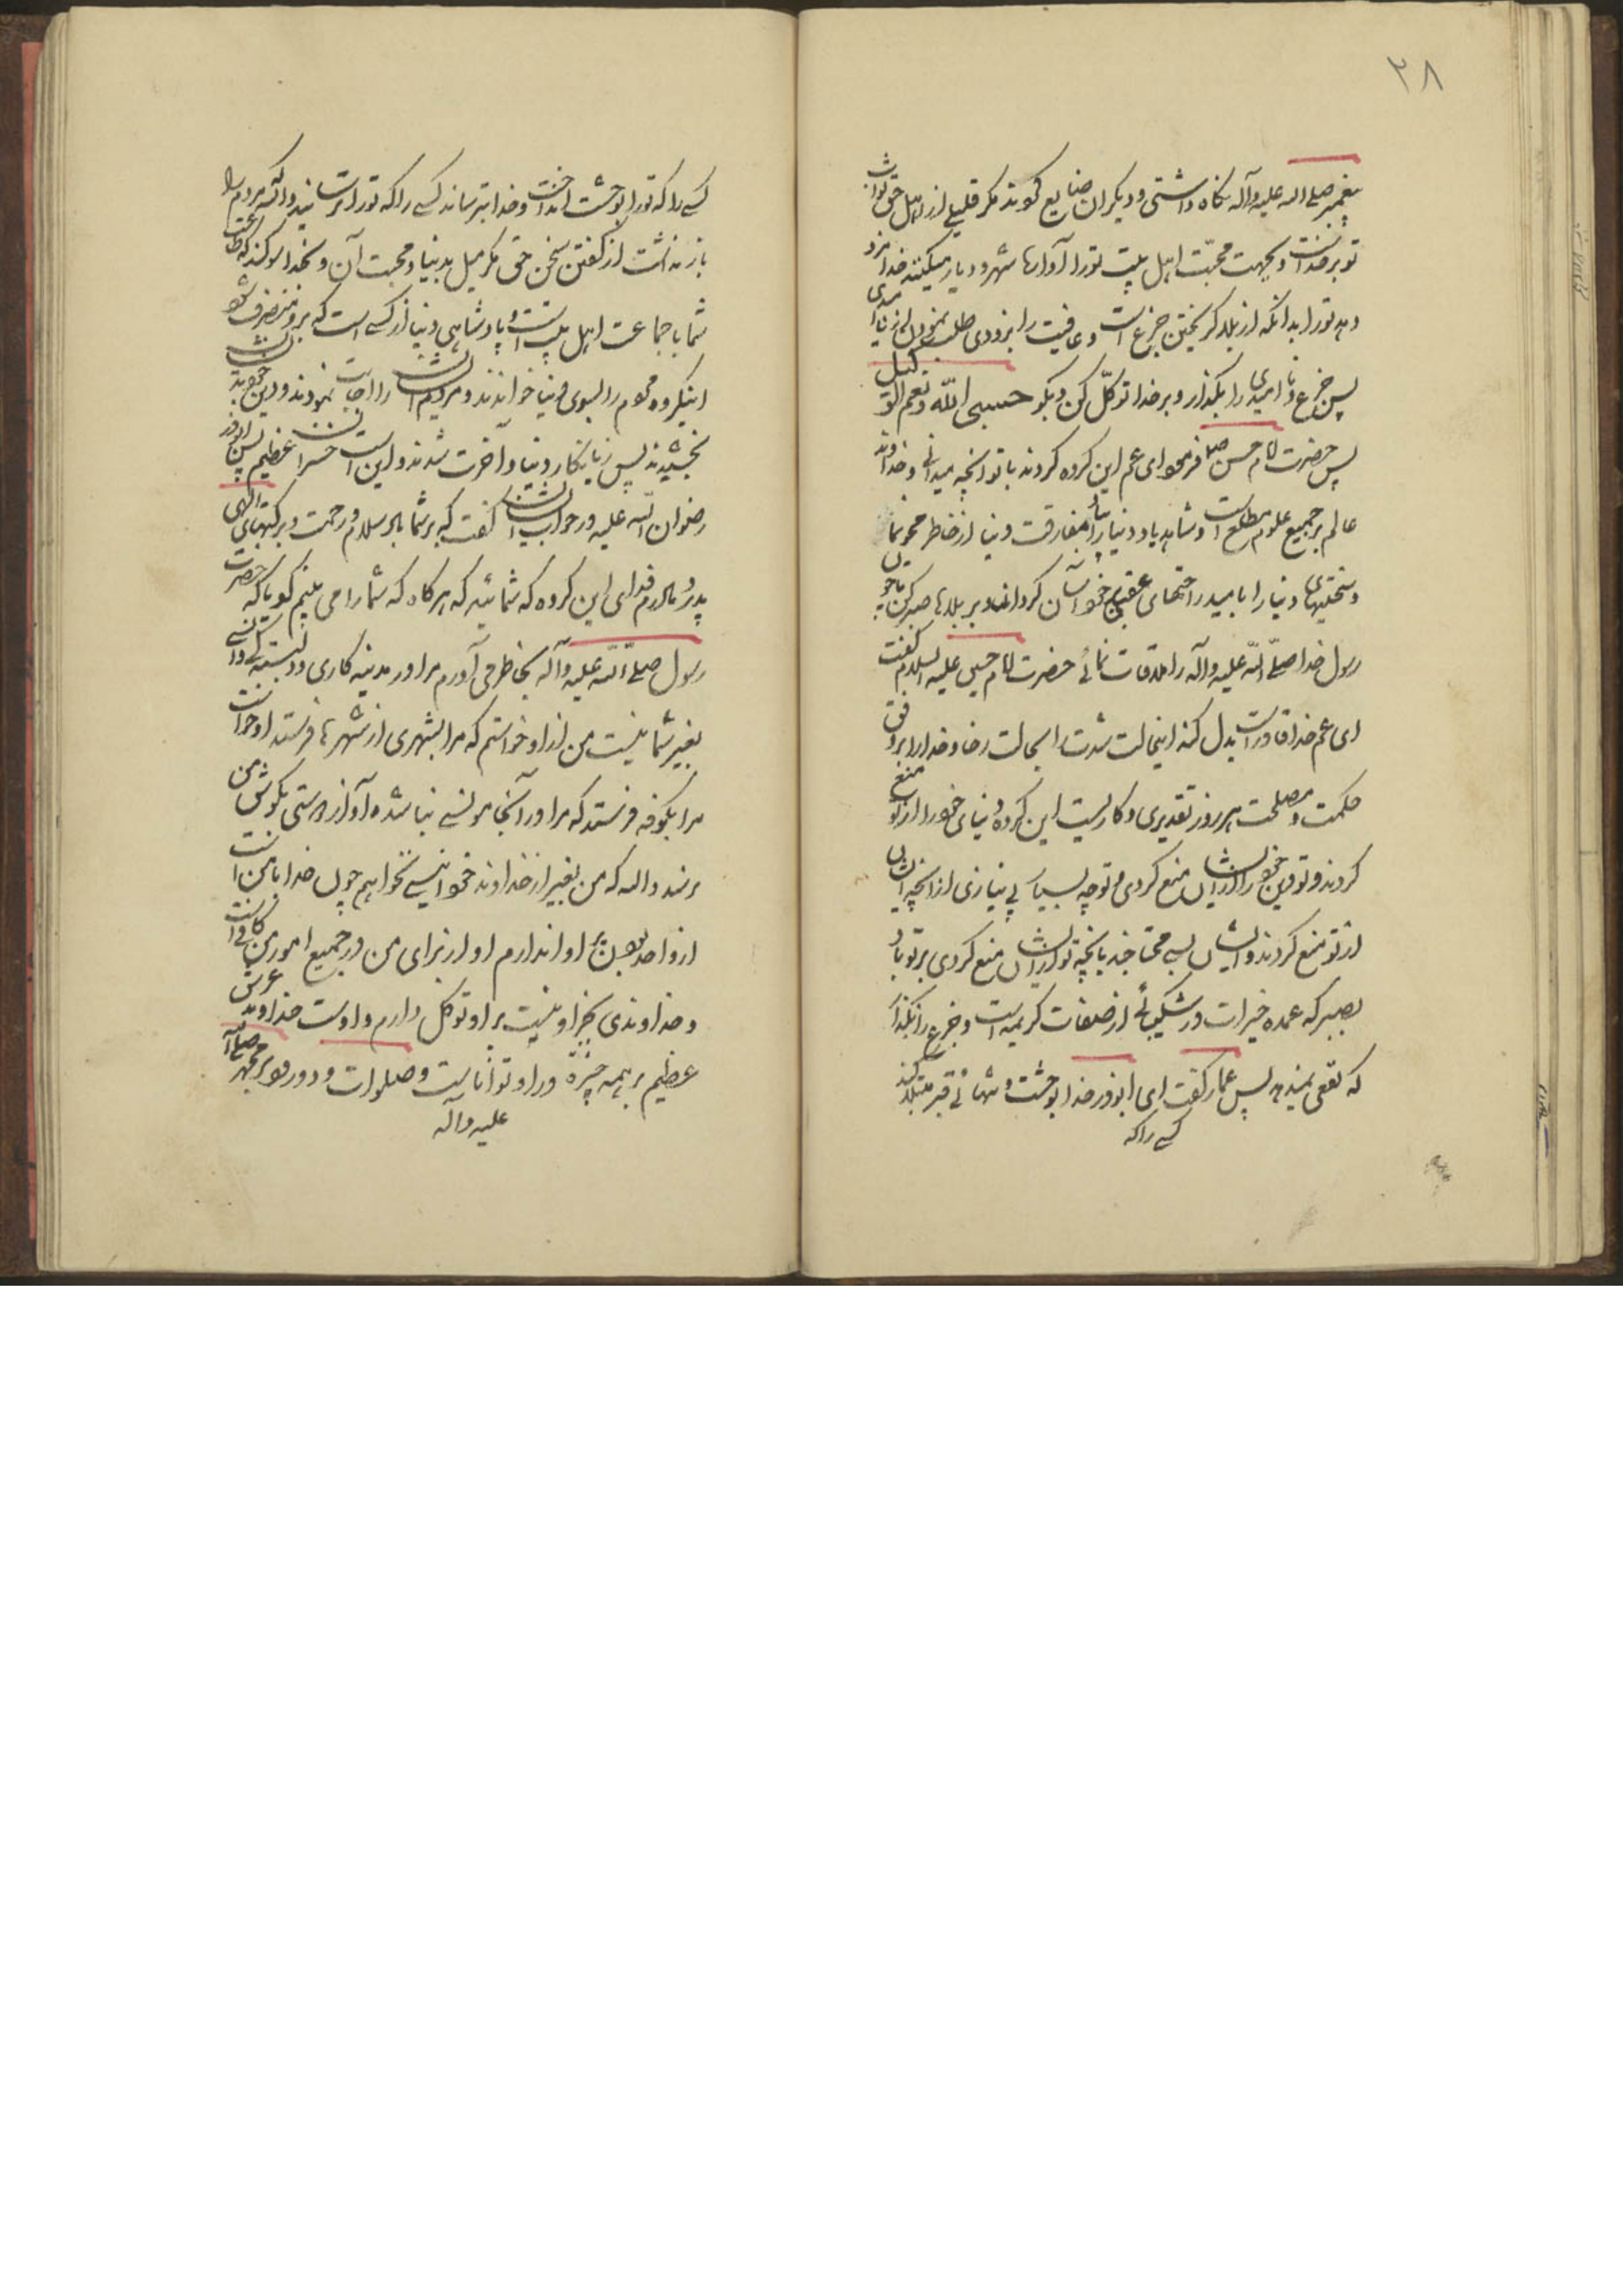 ۲۸
پیغمبر صلی الله علیه وآله نکاه داشتی و دیکران ضایع کردند مکر قلیلی از اهل حق ثواب
تو بر خداست و بجهت محبّت اهل بیت تو را آواره شهر و دیار میکنند خدا مزد
دهد تو را بدانکه از بلا کریختن جزع است و عافیت را بزودی طلب نمودن از نا امیدی
پس جزع و نا امیدی را بکذار و بر خدا توکّل کن و بکو حسبی الله و نعم الوکیل
پس حضرت امام حسن فرمود ای عم این کروه کردند با تو آنچه میدانی و خداوند
عالم بر جمیع علوم مطلع است و شاهد یاد دنیا را بیاد مفارقت دنیا از خاطر محو نما
و سختیهای دنیا را بامید راحتهای عقبی بر خود آسان کردان و بر بلاها صبر کن تا چون
رسول خدا صلی الله علیه وآله را ملاقات نمائی حضرت امام حسین علیه السلام کفت
ای عم خدا قادر است بدل کند اینحالت شدت را بحالت رخا و خدا را بر وفق
حکمت و مصلحت هر روز تقدیری و کاریست این کروه دنیای خود را از تو منع
کردند و تو دین خود را از ایشان منع کردی و تو چه بسیار بی نیازی از آنچه ایشان
از تو منع کردند و ایشان بسی محتاجند بآنچه تو از ایشان منع کردی بر تو باد
بصبر که عمده خیرات در شکیبائی از صفات کریمه است و جزع را بکذار
که نفعی نمیدهد پس عمار کفت ای ابوذر خدا بوحشت و تنهائی قبر مبتلا کند
کسی را که
کسی را که تو را بوحشت انداخت و خدا بترساند کسی را که تو را ترسانید والله مردم را
باز نداشت از کفتن سخن حق مکر میل بدنیا و محبت آن و بخدا سوکند که طاعت
شما با جماعت اهل بیت است و پادشاهی دنیا از کسی است که بر او متصرف شود
اینکروه مردم را بسوی دنیا خواندند و مردم ایشان را اجابت نمودند و دین خود بایشان
بخشیدند پس زیانکار دنیا و آخرت شدند و این است خسران عظیم پس ابوذر
رضوان الله علیه در جواب ایشان کفت که بر شما باد سلام و رحمت و برکتهای الهی
پدر و مادرم فدای این کروه که شمائید که هر کاه که شما را می بینم کویا که حضرت
رسول صلی الله علیه وآله بخاطر می آورم مرا در مدینه کاری و دلبستکی و انسی
بغیر شما نیست من از او خواستم که مرا بشهری از شهرها فرستد او خواست
مرا بکوفه فرستد که مرا در آنجا مونسی نباشد و آواز دوستی بکوش من
نرسد والله که من بغیر از خداوند خود انیسی نخواهم چون خدا با من است
از احدی بدون او اندارم او از برای من در جمیع امور من کافی است
و خداوندی بجز او نیست بر او توکل دارم و اوست خداوند عرش
عظیم بر همه چیز قادر و تواناست و صلوات و درود بر محمد صلی الله
علیه وآله